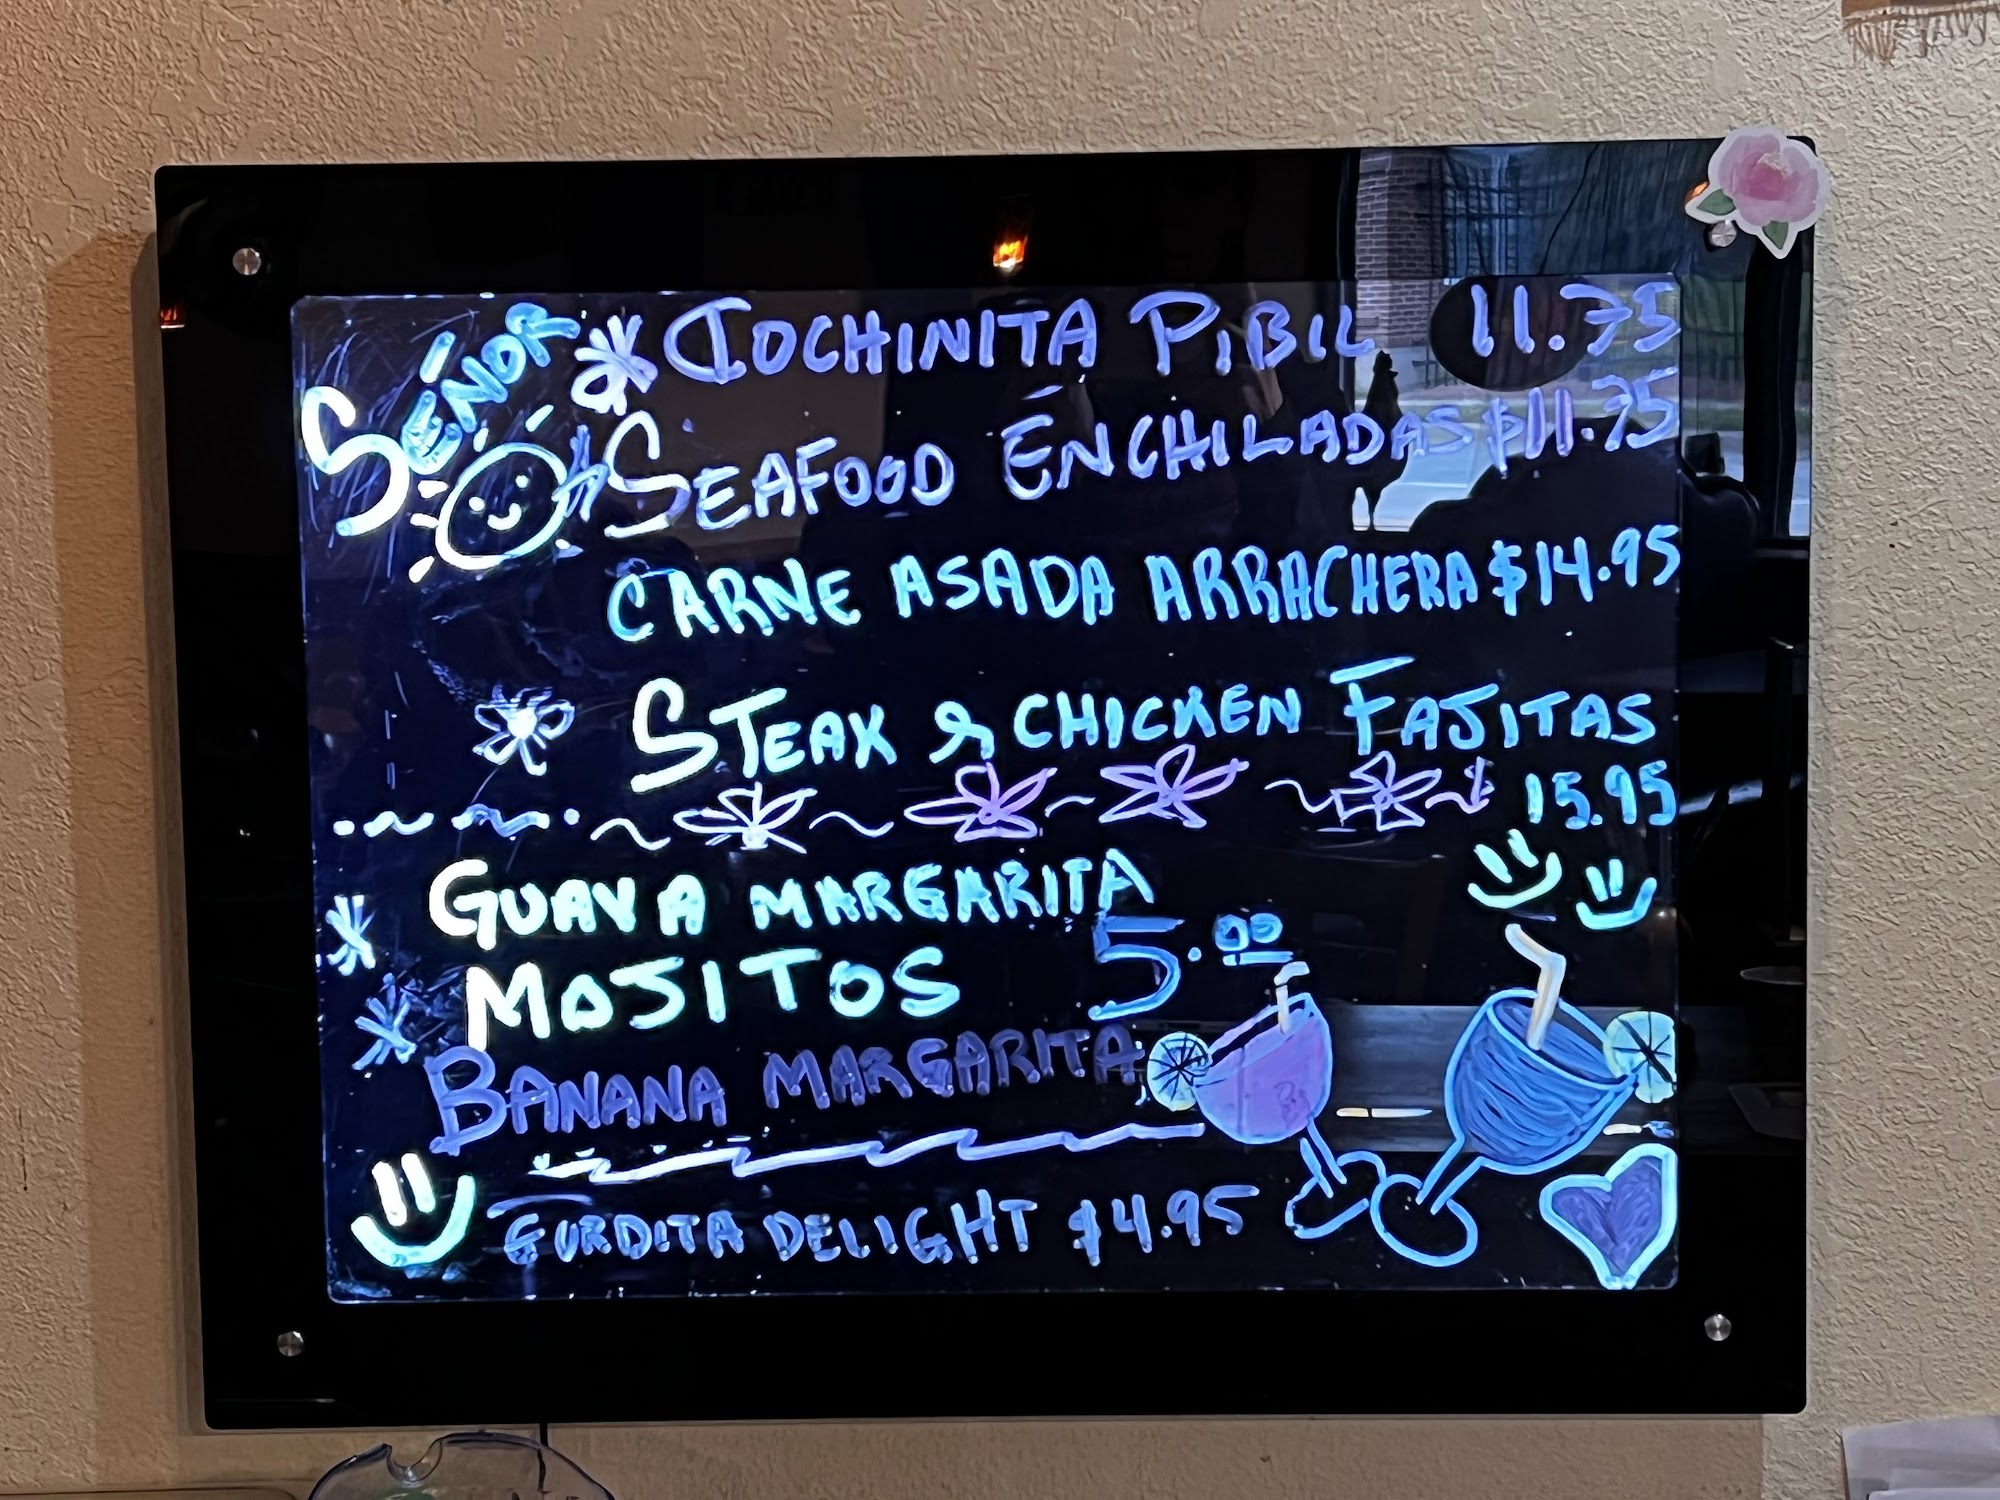 SEÑOR
COCHINITA PIBIL 11.75
SEAFOOD ENCHILADAS $11.75
CARNE ASADA ARRACHERA $14.95
STEAK & CHICKEN FAJITAS
15.95
GUAVA MARGARITA
MOJITOS 5.00
BANANA MARGARITA
GURDITA DELIGHT $4.95